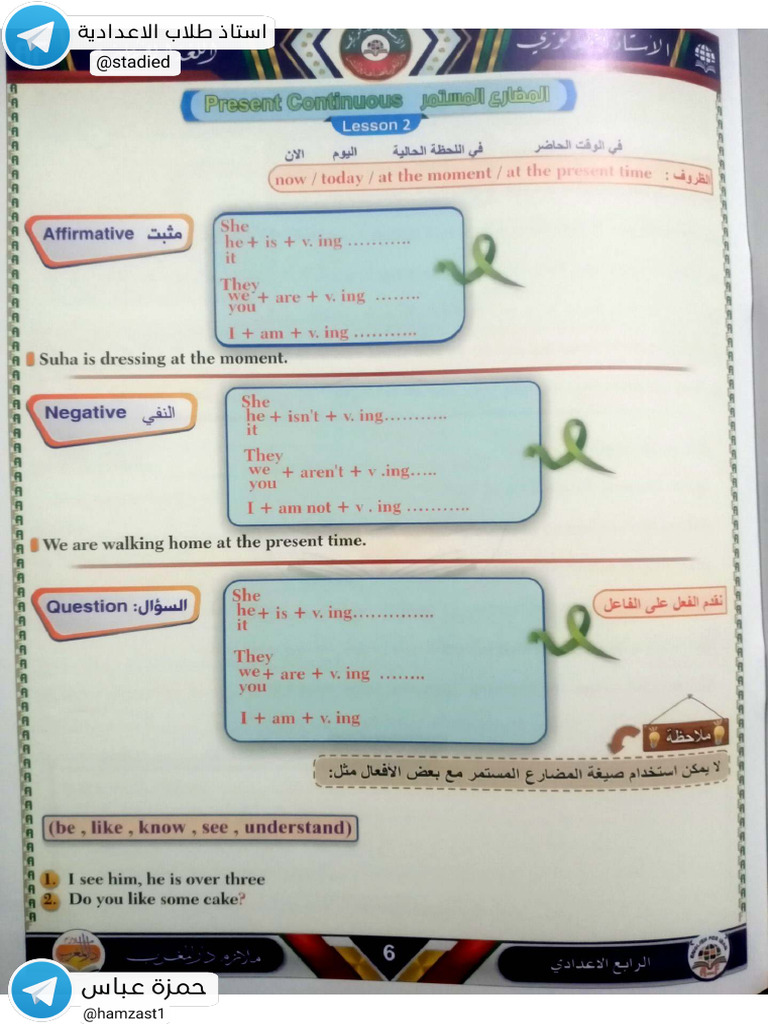 استاذ طلاب الاعدادية
@stadied
Present Continuous المضارع المستمر
Lesson 2
في الوقت الحاضر في اللحظة الحالية اليوم الان
الظروف : now / today / at the moment / at the present time
Affirmative مثبت
She
he + is + v. ing ...........
it
They
we + are + v. ing ........
you
I + am + v. ing ...........
Suha is dressing at the moment.
Negative النفي
She
he + isn't + v. ing...........
it
They
we + aren't + v .ing.....
you
I + am not + v . ing ...........
We are walking home at the present time.
Question :السؤال
نقدم الفعل على الفاعل
She
he + is + v. ing..............
it
They
we + are + v. ing ........
you
I + am + v. ing
ملاحظة
لا يمكن استخدام صيغة المضارع المستمر مع بعض الافعال مثل:
(be , like , know , see , understand)
1. I see him, he is over three
2. Do you like some cake?
6
الرابع الاعدادي
حمزة عباس
@hamzast1